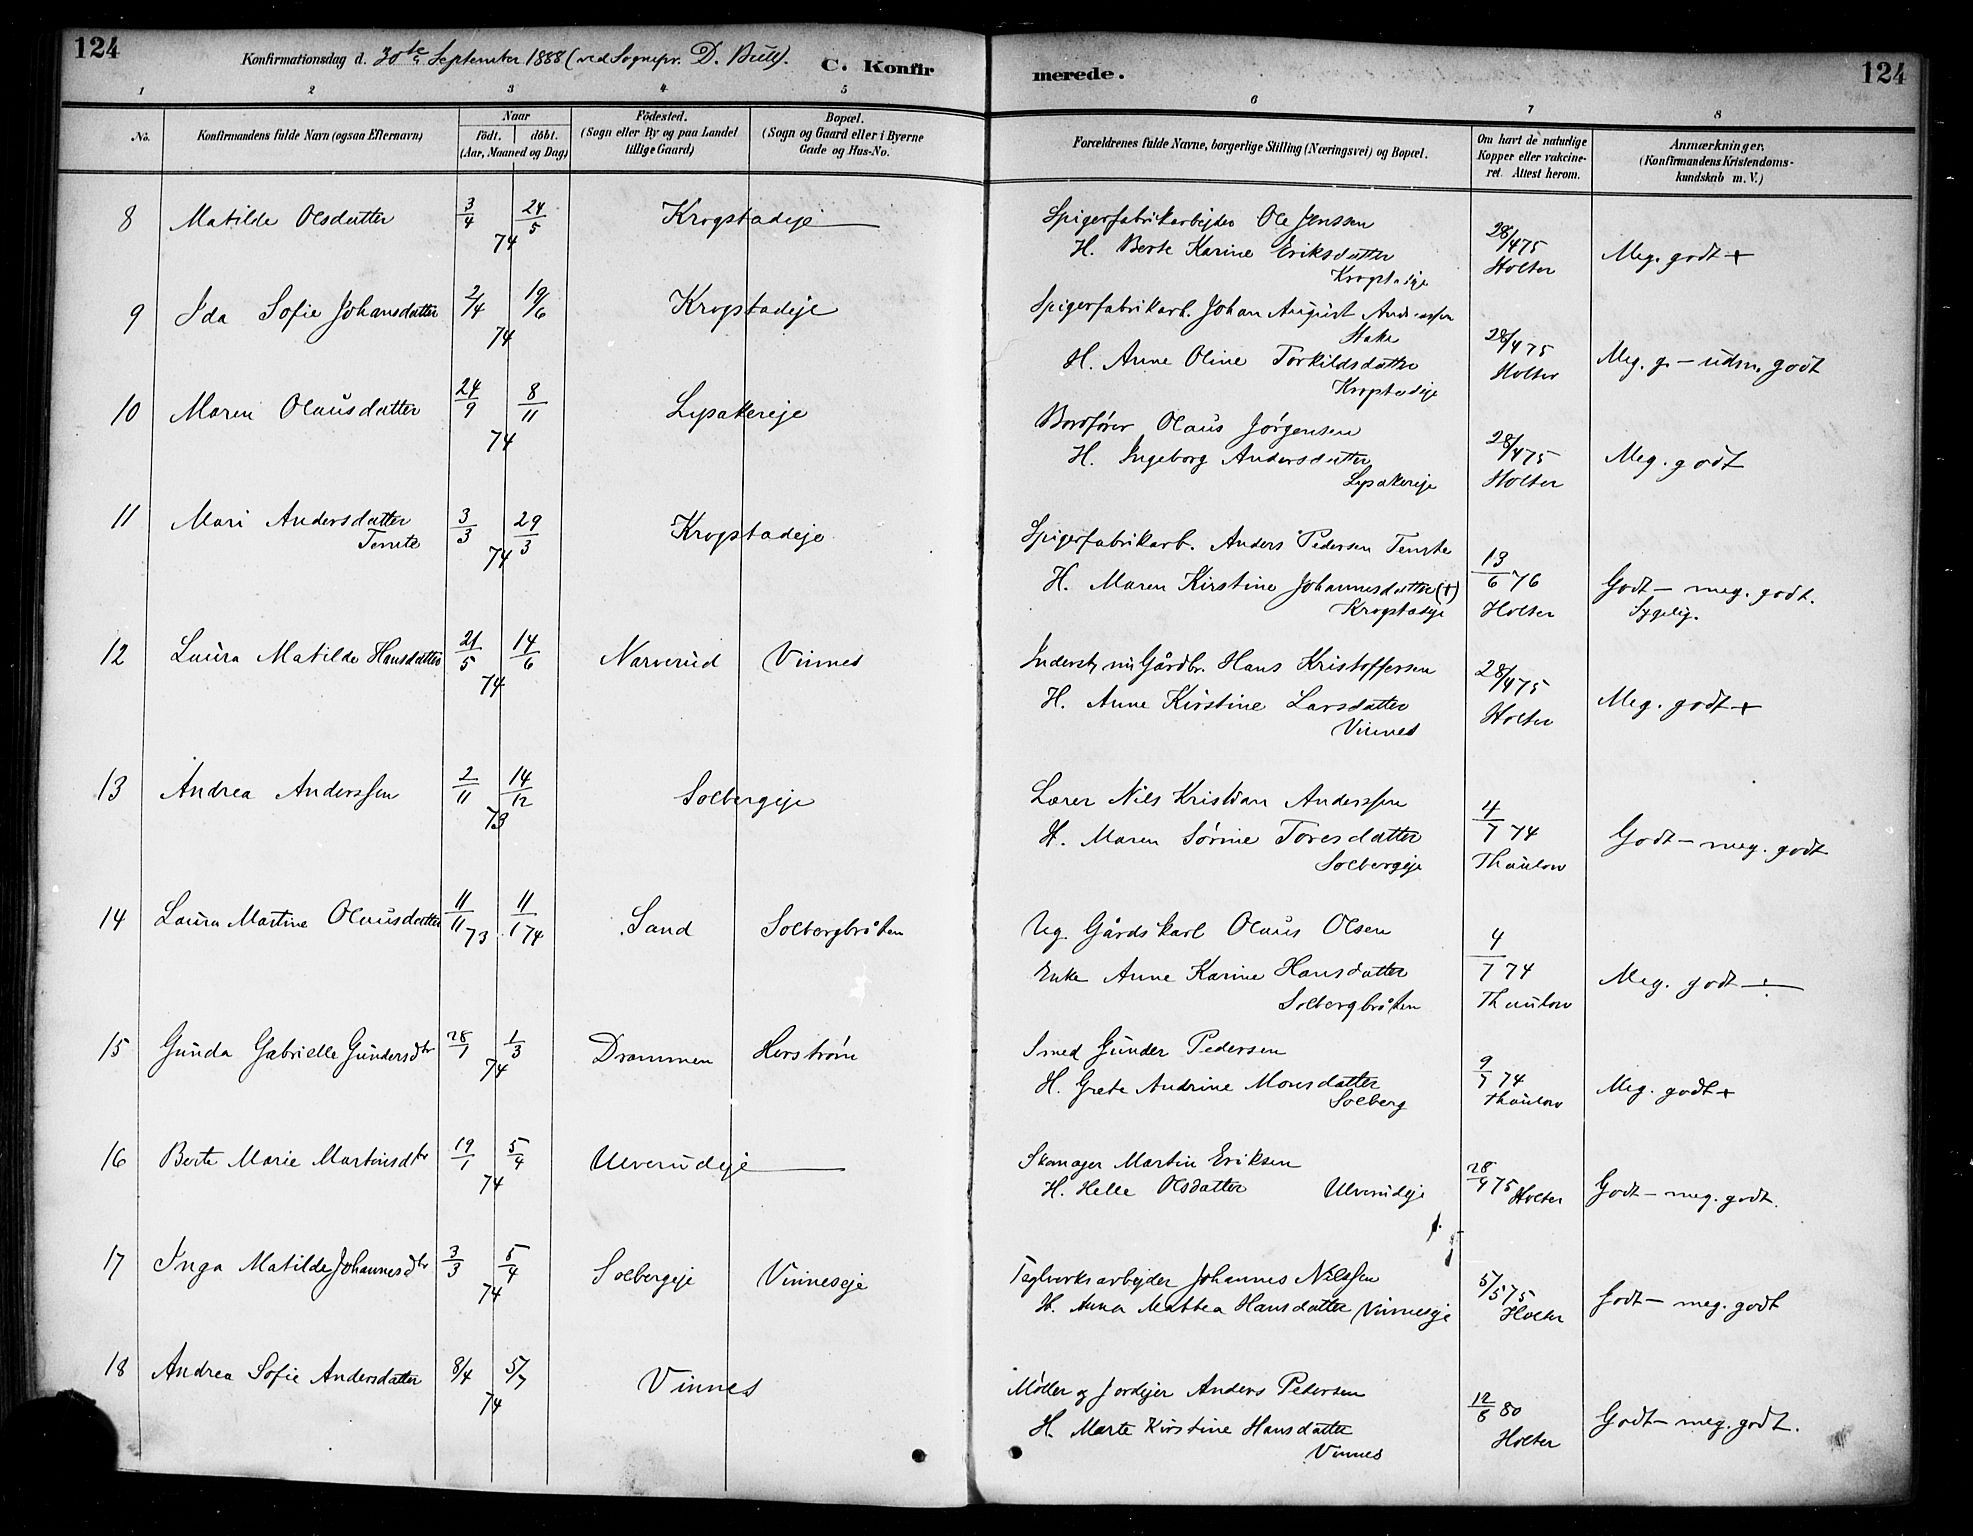 124
Konfirmationsdag d. 30te September 1888 (ved Sognepr. D. Bull).
C. Konfir
merede.
124
1 2 3 4 5 6 7 8
No.
Konfirmandens fulde Navn (ogsaa Efternavn)
Naar
födt. döbt.
(Aar, Maaned og Dag)
Födested.
(Sogn eller By og paa Landet
tillige Gaard)
Bopæl.
(Sogn og Gaard eller i Byerne
Gade og Hus-No.
Forældrenes fulde Navne, borgerlige Stilling (Næringsvei) og Bopæl.
Om havt de naturlige
Kopper eller vakcine-
ret. Attest herom.
Anmærkninger.
(Konfirmandens Kristendoms-
kundskab m. V.)
8 Matilde Olsdatter 3/4 24/5 74 Krogstadeje
Spigerfabrikarbejder Ole Jenssen
H. Berte Karine Eriksdatter
Krogstadeje
28/4 75
Holter
Meg. godt +
9 Ida Sofie Johansdatter 2/4 19/6 74 Krogstadeje
Spigerfabrikarb. Johan August Andreassen
Stake
H. Anne Oline Torkildsdatter
Krogstadeje
28/4 75
Holter
Meg. g. – udm. godt
10 Maren Olausdatter 24/9 8/11 74 Lysakereje
Bordfører Olaus Jörgensen
H. Ingeborg Andersdatter
Lysakereje
28/4 75
Holter
Meg. godt
11 Mari Andersdatter
3/3 29/3 74 Krogstadeje
Spigerfabrikarb. Anders Pedersen
H. Maren Kirstine Johannesdatter (+)
Krogstadeje
13/6 76
Holter
Godt – meg. godt.
Sygelig.
12 Laura Matilde Hansdatter 21/5 14/6 74 Narverud Vinnes
Inderst, Gårdbr. Hans Kristoffersen
H. Anne Kirstine Larsdatter
Vinnes
28/4 75
Holter
Meg. godt +
13 Andrea Anderssen 2/11 14/12 73 Solbergeje
Lærer Nils Kristian Anderssen
H. Maren Sörine Toresdatter
Solbergeje
4/7 74
Thaulow
Godt – meg. godt
14 Laura Martine Olausdatter 11/11 73 11/1 74 Sand Solbergbråten
Ug. Gårdskarl Olaus Olsen
Enke Anne Karine Hansdatter
Solbergbråten
4/7 74
Thaulow
Meg. godt ÷
15 Gunda Gabrielle Gundersdtr 28/1 1/3 74 Drammen Herström
Smed Gunder Pedersen
H. Grete Andrine Monsdatter
Solberg
9/7 74
Thaulow
Meg. godt +
16 Berte Marie Martinsdtr 19/1 5/4 74 Ulverudeje
Skomager Martin Eriksen
H. Helle Olsdatter Ulverudeje
28/9 75 Holter
Godt – meg. godt.
17 Inga Matilde Johannesdtr 3/3 5/4 74 Solbergeje Vinneseje
Teglverksarbejder Johannes Nilssen
H. Anna Mathea Hansdatter Vinneseje
5/5 75
Holter
Godt – meg. godt
18 Andrea Sofie Andersdatter 8/4 5/7 74 Vinnes
Möller og Jordejer Anders Pedersen
H. Marte Kirstine Hansdatter
Vinnes
12/8 80
Holter
Godt – meg. godt.